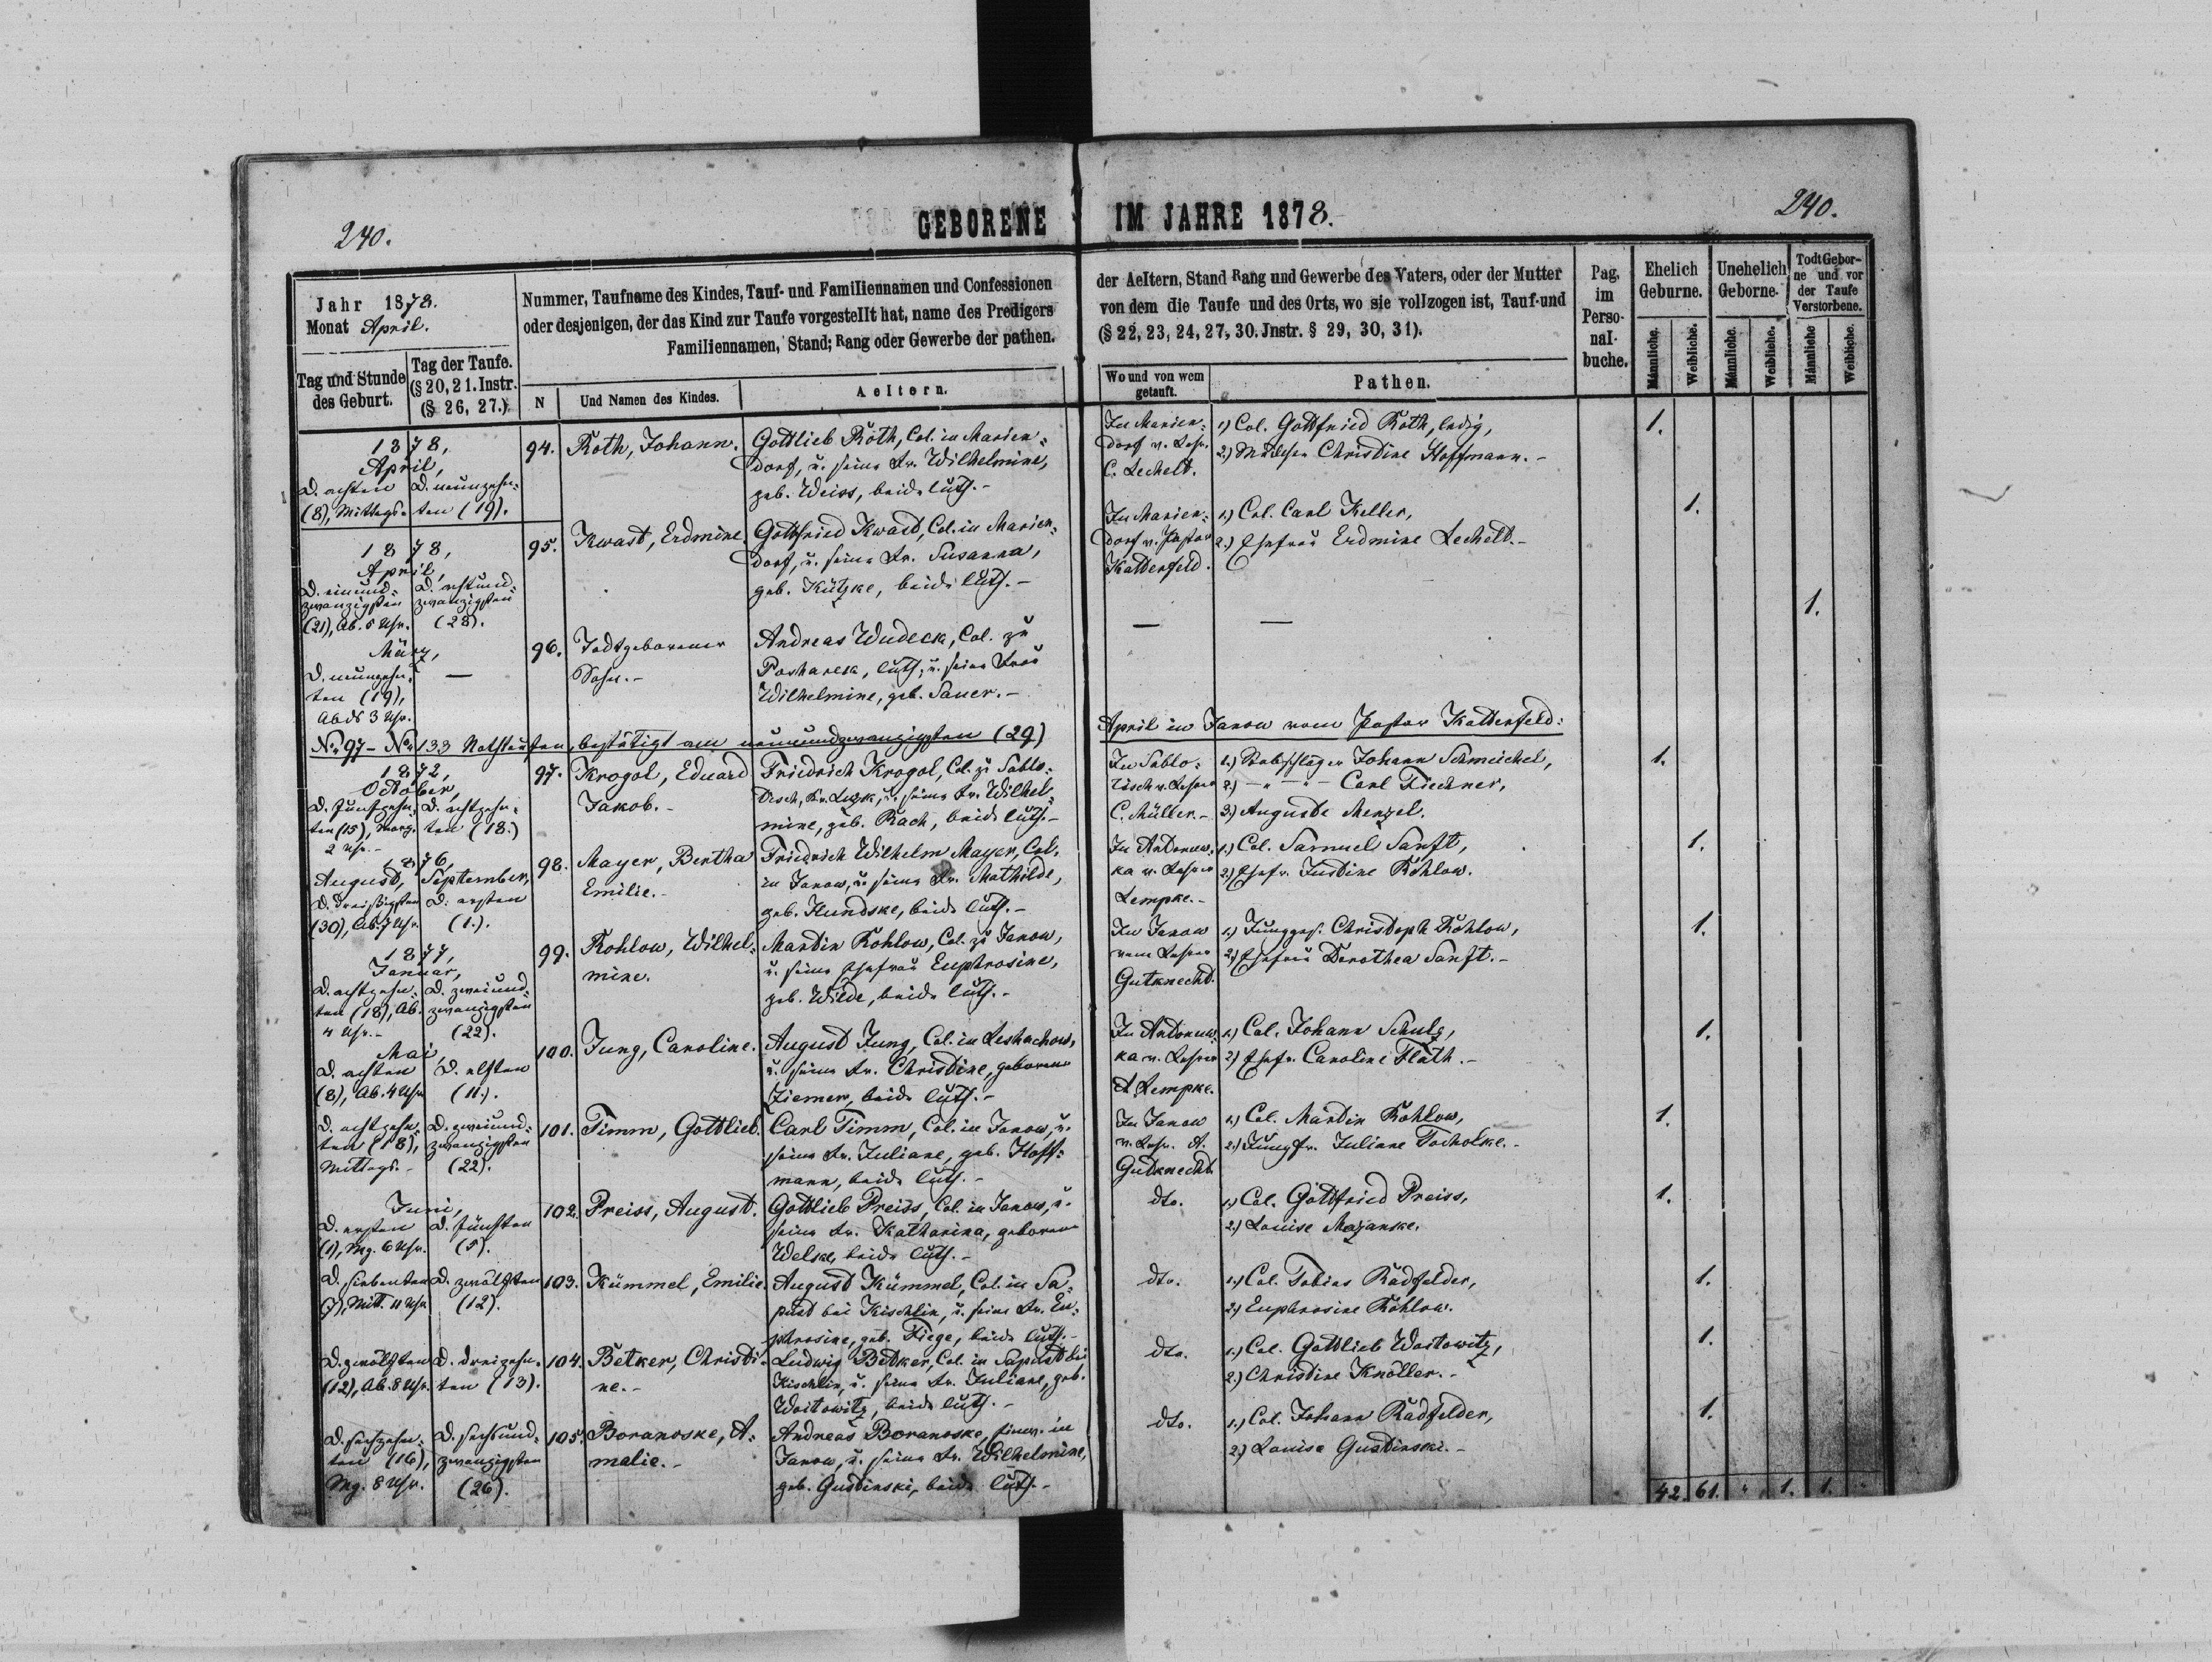 240.
GEBORENE IM JAHRE 1878.
240.
Jahr 1878.
Monat April.
Tag und Stunde des Geburt.
Tag der Taufe.
(§ 20, 21. Instr.
(§ 26, 27.)
Nummer, Taufname des Kindes, Tauf- und Familiennamen und Confessionen
oder desjenigen, der das Kind zur Taufe vorgestellt hat, name des Predigers
Familiennamen, Stand; Rang oder Gewerbe der pathen.
N
Und Namen des Kindes.
Aeltern.
der Aeltern, Stand Rang und Gewerbe des Vaters, oder der Mutter
von dem die Taufe und des Orts, wo sie vollzogen ist, Tauf-und
(§ 22, 23, 24, 27, 30. Jnstr. § 29, 30, 31).
Wo und von wem
getauft.
Pathen.
Pag.
im
Perso-
nal-
buche.
Ehelich
Geburne.
Unehelich
Geborne.
Todt Gebor-
ne und vor
der Taufe
Verstorbene.
Männliche.
Weibliche.
Männliche.
Weibliche.
Männliche
Weibliche.
1878,
April,
D. achten
(8), Mittags.
D. neunzehn-
ten (19).
94.
Roth, Johann.
Gottlieb Roth, Col. in Marien-
dorf, u. seine Fr. Wilhelmine,
geb. Weiss, beide luth.-
In Marien-
dorf v. Lehr.
C. Lechelt.
1.) Col. Gottfried Roth, ledig,
2.) Mädchen Christine Hoffmann.-
1.
1878,
April,
D. einund-
zwanzigsten
(21), Ab. 5 Uhr.
D. achtund-
zwanzigsten
(28).
95.
Kwast, Erdmine.
Gottfried Kwast, Col. in Marien-
dorf, u. seine Fr. Susanna,
geb. Kützke, beide luth.-
In Marien-
dorf v. Pastor
Kattenfeld.
1.) Col. Carl Keller,
2.) Ehefrau Erdmine Lechelt.-
1.
März,
D. neunzehn-
ten (19),
Abds 3 Uhr.
—
96.
Todtgeborener
Sohn.-
Andreas Wudeck, Col. zu
luth., u. seine Frau
Wilhelmine, geb. Sauer.-
—
—
1.
No 97 - No 133 Nothtaufen, bestätigt am neunundzwanzigsten (29)
April in Janow vom Pastor Kattenfeld:
1872,
October,
D. fünfzehn-
ten (15), Morg.
2 Uhr.-
D. achtzehn-
ten (18.)
97.
Krogol, Eduard
Jakob.-
Friedrich Krogol, Col. zu Sablo-
tisch, Kr. Luzk, u. seine Fr. Wilhel-
mine, geb. Rach, beide luth.-
In Sablo-
tisch v. Lehrer
C. Müller.-
1.) Stabschläger Johann Schmichel,
2.) - " - " - Carl Fiechner,
3.) Auguste Menzel.
1.
1876,
August,
D. dreißigsten
(30), Ab. 7 Uhr.
September,
D. ersten
(1.).
98.
Mayer, Bertha
Emilie.-
Friedrich Wilhelm Mayer, Col.
in Janow, u. seine Fr. Mathilde,
geb. Hundske, beide luth.-
In Antonuw-
ka v. Lehrer
Lempke.-
1.) Col. Samuel Sanft,
2.) Ehefr. Justine Rohlow.
1.
1877,
Januar,
D. achtzehn-
ten (18), Ab.
4 Uhr.-
D. zweiund-
zwanzigsten
(22).
99.
Rohlow, Wilhel-
mine.
Martin Rohlow, Col. zu Janow,
u. seine Ehefrau Euphrosine,
geb. Wilde, beide luth.-
In Janow
vom Lehrer
Gutknecht.
1.) Junggef. Christoph Rohlow,
2.) Ehefrau Dorothea Sanft.-
1.
Mai,
D. achten
(8), Ab. 4 Uhr
D. elften
(11.).
100.
Jung, Caroline.
August Jung, Col. in Leshachow,
u. seine Fr. Christine, geborene
Ziemer, beide luth.-
In Antonuw-
ka v. Lehrer
A Lempke.
1.) Col. Johann Schulz,
2.) Ehefr. Caroline Flath.-
1.
D. achtzehn-
ten (18),
Mittags.-
D. zweiund-
zwanzigsten
(22).
101.
Timm, Gottlieb.
Carl Timm, Col. in Janow, u.
seine Fr. Juliane, geb. Hoff-
mann, beide luth.-
In Janow
v. Lehr. A.
Gutknecht
1.) Col. Martin Rohlow,
2.) Jungfr. Juliane Tocholke.-
1.
Juni,
D. ersten
(1), Mg. 6 Uhr.
D. fünften
(5).
102.
Preiss, August.
Gottlieb Preiss, Col. in Janow, u.
seine Fr. Katharina, geborene
Welske, beide luth.-
dto.
1.) Col. Gottfried Preiss,
2.) Louise Mazanske.
1.
D. siebenten
(7), Mitt. 11 Uhr.
D. zwölften
(12).
103.
Kümmel, Emilie.
August Kümmel, Col. in Sa-
pust bei Kischlin, u. seine Fr. Eu-
phrosine, geb. Fiege, beide luth.-
dto.
1.) Col. Tobias Radfelder,
2.) Euphrosine Rohlow.
1.
D. zwölften
(12), Ab. 8 Uhr.
D. dreizehn-
ten (13).
104.
Betker, Christi-
ne.-
Ludwig Betker, Col. in Sapust bei
Kischlin, u. seine Fr. Juliane, geb.
Woitowitz, beide luth.-
dto.
1.) Col. Gottlieb Woitowitz,
2.) Christine Knöller.-
1.
D. sechzehn-
ten (16),
Mg. 8 Uhr.
D. sechsund-
zwanzigsten
(26).
105.
Boranoske, A-
malie.-
Andreas Boranoske, Einw. in
Janow, u. seine Fr. Wilhelmine,
geb. Gustinski, beide luth.-
dto.
1.) Col. Johann Radfelder,
2.) Louise Gustinski.-
1.
42. 61. " 1. 1.